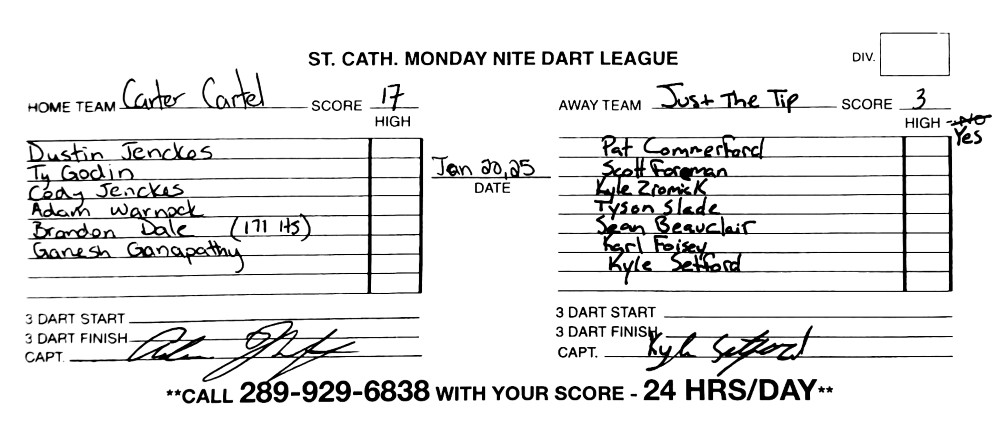 ST. CATH. MONDAY NITE DART LEAGUE
DIV.
HOME TEAM Carter Cartel SCORE 17
HIGH
Dustin Jenckes
Ty Godin
Cody Jenckes
Adam Warnock
Brandon Dale (171 HS)
Ganesh Ganapathy
3 DART START
3 DART FINISH
CAPT.
Jan 20, 25
DATE
AWAY TEAM Just The Tip SCORE 3
HIGH NO
Yes
Pat Commerford
Scott Foreman
Kyle Zromick
Tyson Slade
Sean Beauclair
Karl Foisey
Kyle Setford
3 DART START
3 DART FINISH
CAPT. Kyle Setford
**CALL 289-929-6838 WITH YOUR SCORE - 24 HRS/DAY**